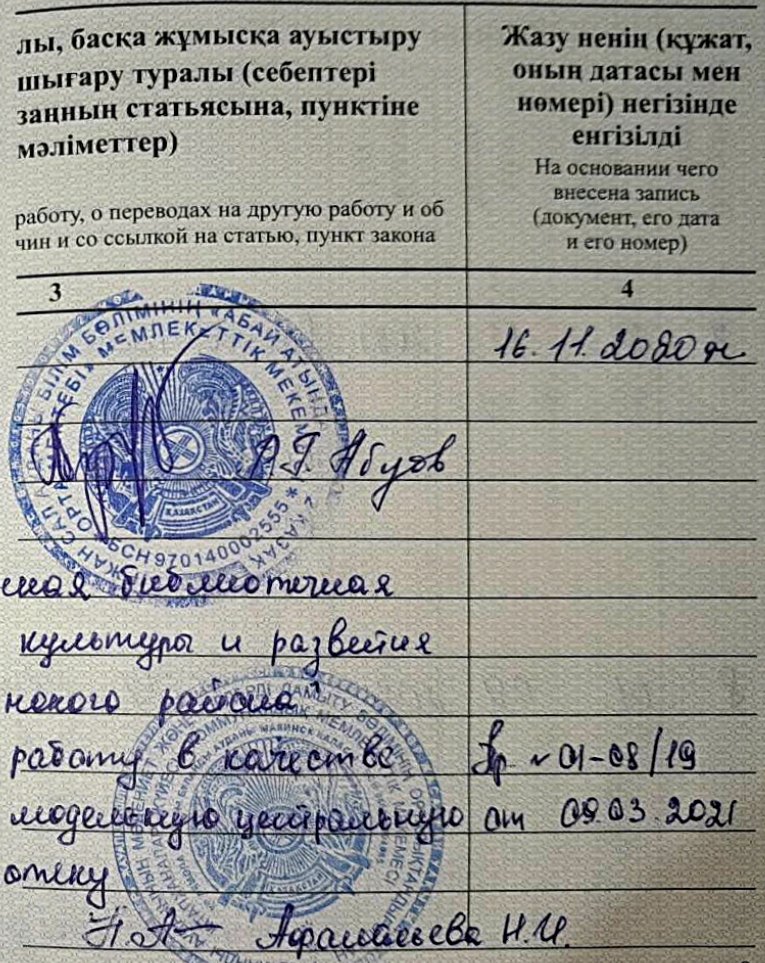 лы, басқа жұмысқа ауыстыру
шығару туралы (себептері
заңның статьясына, пунктіне
мәліметтер)
работу, о переводах на другую работу и об
чин и со ссылкой на статью, пункт закона
Жазу ненің (құжат,
оның датасы мен
нөмері) негізінде
енгізілді
На основании чего
внесена запись
(документ, его дата
и его номер)
3
4
16.11.2020 ж
БІЛІМ БӨЛІМІНІҢ «АБАЙ АТЫНД
МЕМЛЕКЕТТІК МЕКЕМ
ҚАЗАҚСТАН
БСН 970140002555 *
Р.Г. Абуов
ная библиотечная
культуры и развития
нского района"
работу в качестве
Пр. № 01-08/19
модельную центральную
от 09.03.2021
отеку
Афанасьева Н.И.